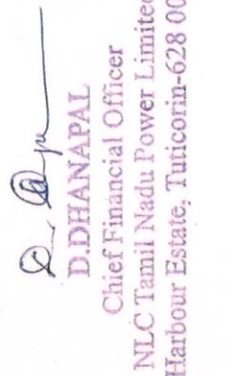 D.DHANAPAL
Chief Financial Officer
NLC Tamil Nadu Power Limited
Harbour Estate, Tuticorin-628 00